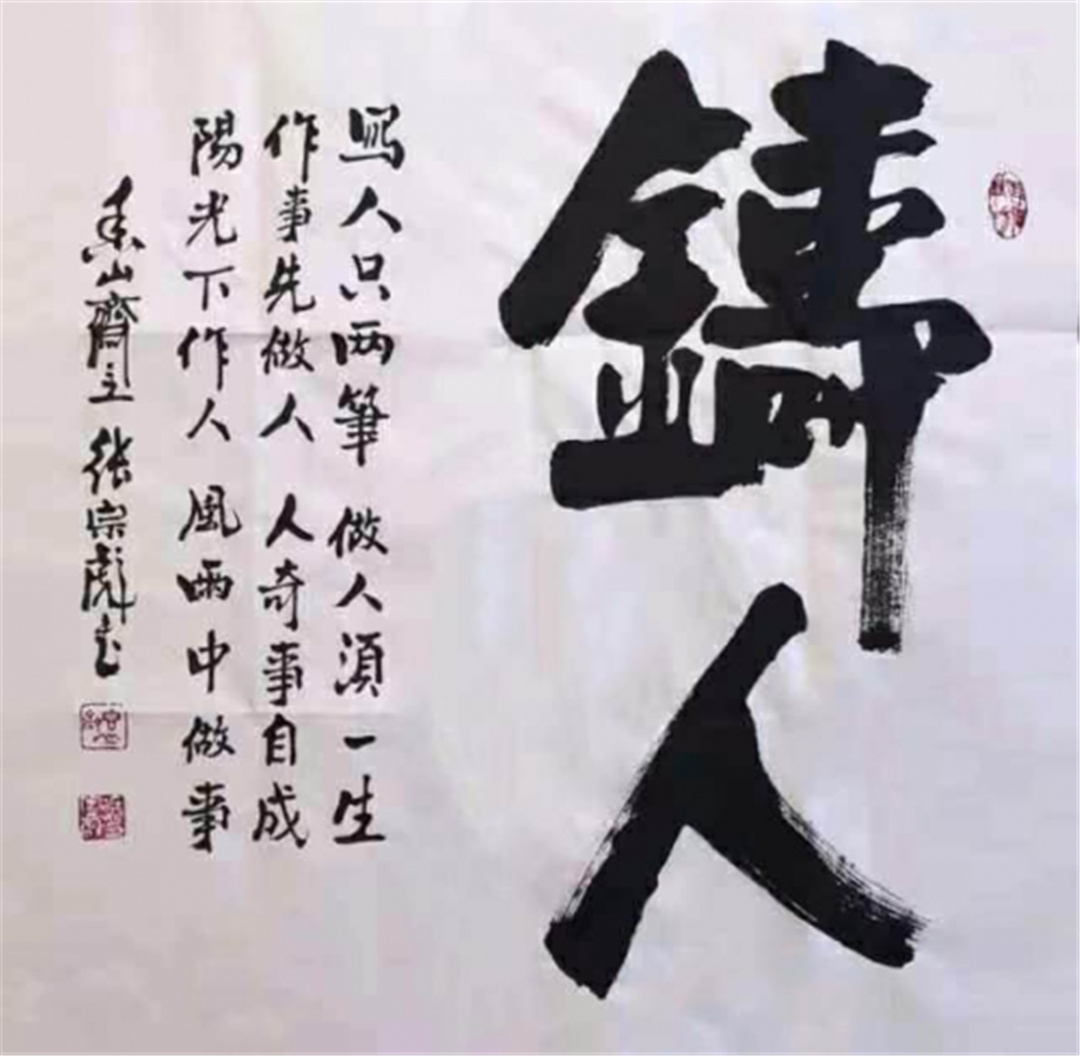 鑄人
寫人只两筆 做人須一生
作事先做人 人奇事自成
陽光下作人 風雨中做事
香山齋主 張宗彪書